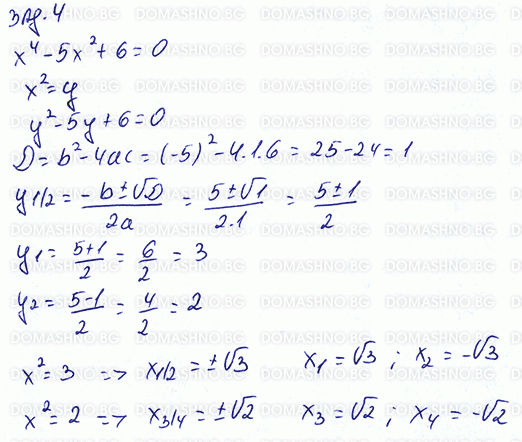 зад. 4
x⁴ - 5x² + 6 = 0
x² = y
y² - 5y + 6 = 0
D = b² - 4ac = (-5)² - 4.1.6 = 25 - 24 = 1
y1/2 = (-b ± √D)/2a = (5 ± √1)/2.1 = (5 ± 1)/2
y1 = (5+1)/2 = 6/2 = 3
y2 = (5-1)/2 = 4/2 = 2
x² = 3 => x1/2 = ±√3 x1 = √3 ; x2 = -√3
x² = 2 => x3/4 = ±√2 x3 = √2 ; x4 = -√2
DOMASHNO.BG